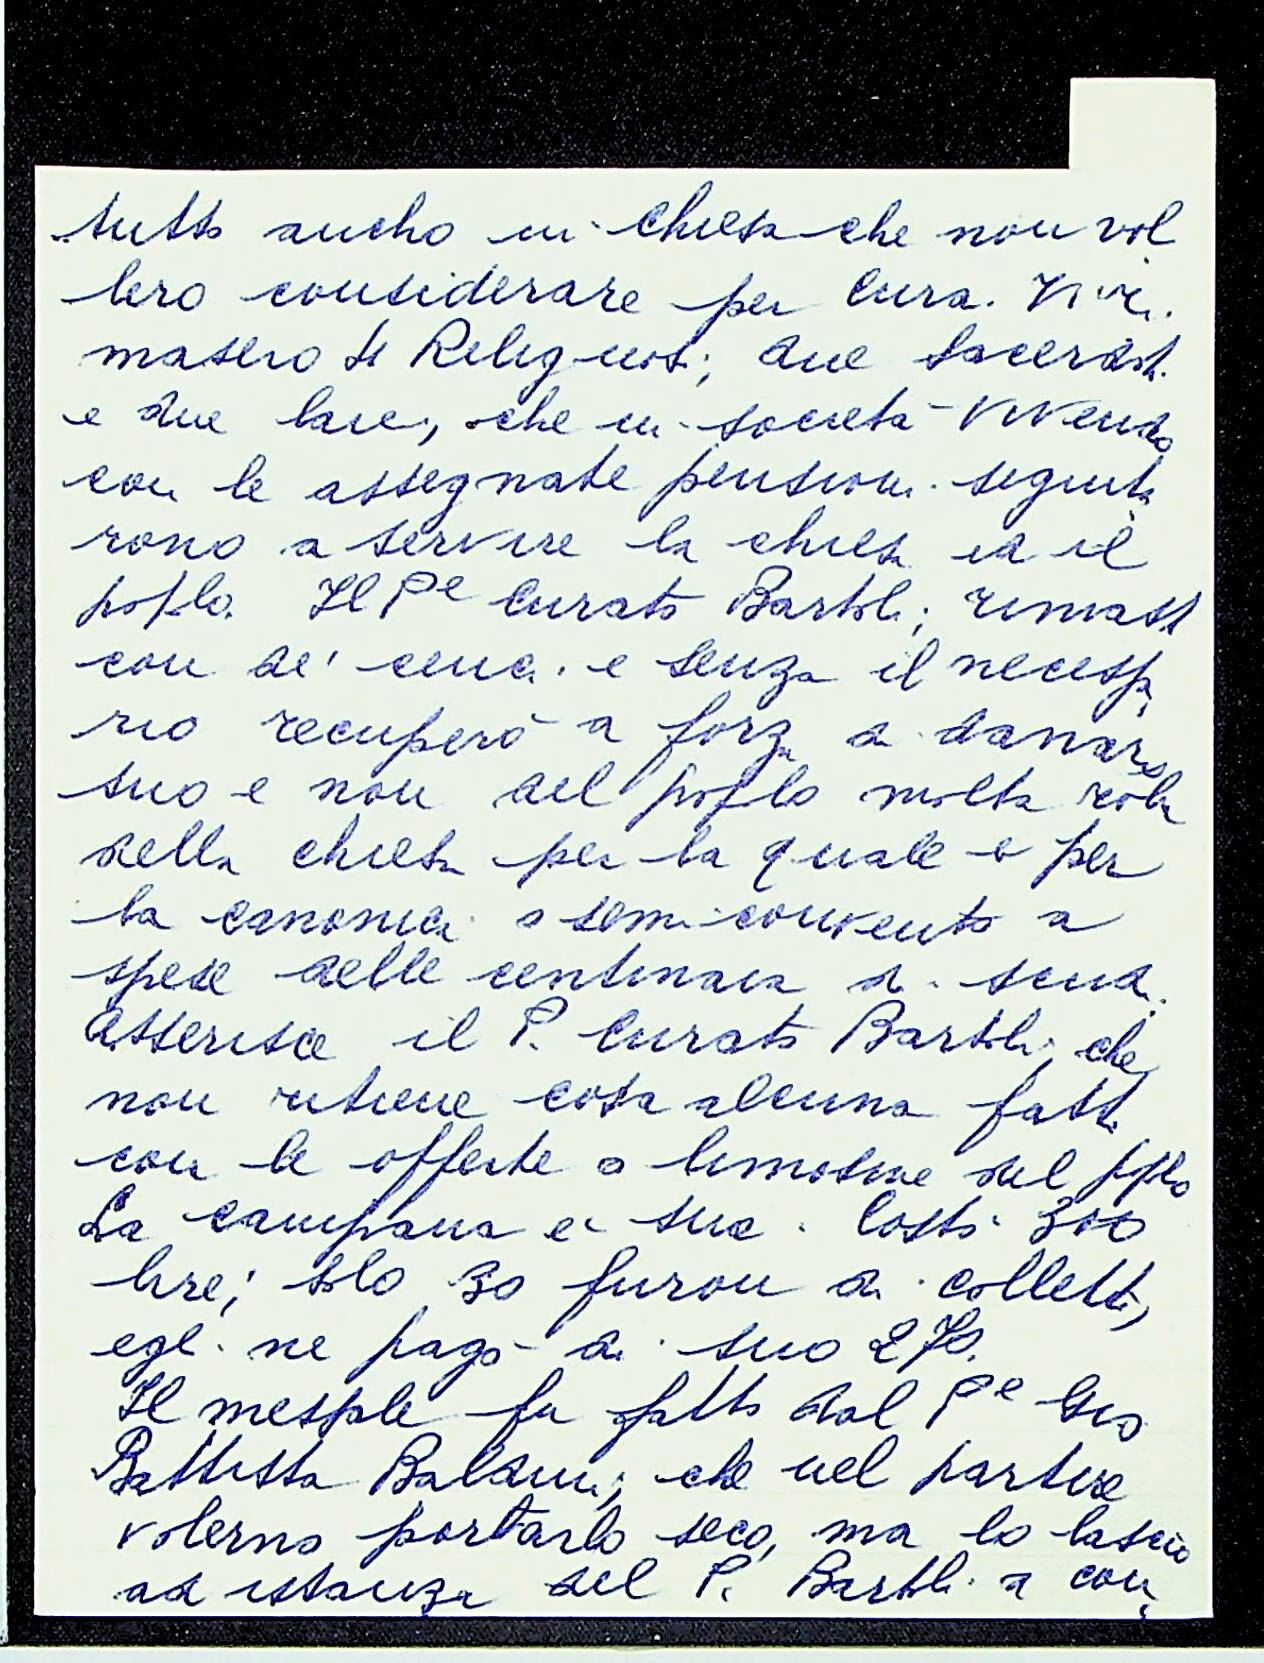 tutto ancho in chiesa che non vol
lero considerare per Cura. Vi ri
masero 4 Religiosi, due sacerdoti
e due laici, che in società vivendo
con le assegnate pensioni seguita
rono a servire la chiesa ed il
poplo. Il Pe Curato Bartoli, rimasto
con de' cenci e senza il necessa
rio recuperò a forza di danaro
suo e non del poplo molta roba
della chiesa per la quale e per
la canonica o semi-convento a
spese delle centinaia di scudi.
Asserisce il P. Curato Bartoli, che
non ritiene cosa alcuna fatta
con le offerte o limosine del pplo
La campana è sua. Costò 300
lire; solo 30 furon di colletta,
egli ne pagò di suo 270.
Il messale fu fatto dal Pe Gio
Battista Baldini, che nel partire
portarlo seco, ma lo lasciò
ad istanza del P. Bartoli a con